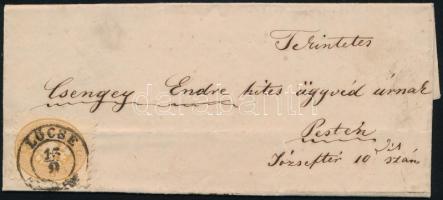 Tekintetes
Csengey Endre hites ügyvéd úrnak
Pesten
Józseftér 10 dik szám
LÖCSE
15
9
darabanth